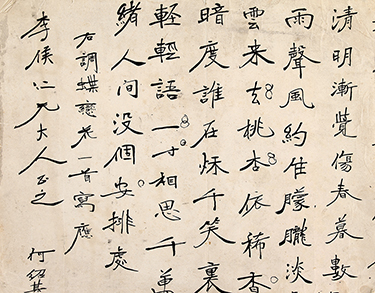 清明漸覺傷春暮數
雨聲風約住朦朧淡
雲来去桃杏依稀香
暗度誰在秋千笑裏
輕輕語一寸相思千萬
緒人间没個安排處
右調蝶戀花一首寫應
李侯仁兄大人正之
何紹基